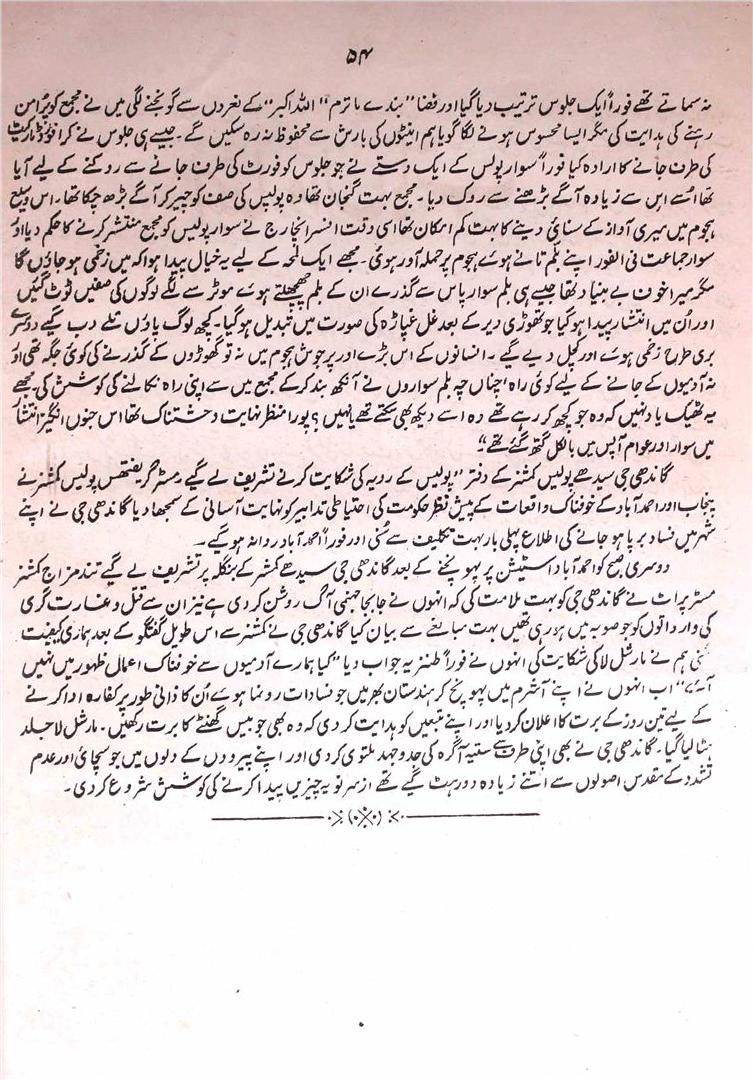 ۵۴
نہ سماتے تھے فوراً ایک جلوس ترتیب دیا گیا اور فضا "بندے ماترم" "اللہ اکبر" کے نعروں سے گونجنے لگی میں نے مجمع کو پُرامن
رہنے کی ہدایت کی مگر ایسا محسوس ہونے لگا گویا ہم اینٹوں کی بارش سے محفوظ نہ رہ سکیں گے۔ جیسے ہی جلوس نے کرافوڈ مارکیٹ
کی طرف جانے کا ارادہ کیا فوراً سوار پولس کے ایک دستے نے جو جلوس کو فورٹ کی طرف جانے سے روکنے کے لیے آیا
تھا اُسے اس سے زیادہ آگے بڑھنے سے روک دیا۔ مجمع بہت گنجان تھا وہ پولیس کی صف کو چیر کر آگے بڑھ چکا تھا۔ اس وسیع
ہجوم میں میری آواز کے سنائی دینے کا بہت کم امکان تھا اسی وقت افسر انچارج نے سوار پولیس کو مجمع منتشر کرنے کا حکم دیا اور
سوار جماعت فی الفور اپنے بلم تانے ہوئے ہجوم پر حملہ آور ہوئی۔ مجھے ایک لمحہ کے لیے یہ خیال پیدا ہوا کہ میں زخمی ہو جاؤں گا
مگر میرا خوف بے بنیاد تھا جیسے ہی بلم سوار پاس سے گذرے ان کے بلم چھچھلتے ہوئے موٹر سے لگے لوگوں کی صفیں ٹوٹ گئیں
اور اُن میں انتشار پیدا ہو گیا جو تھوڑی دیر کے بعد غل غپاڑہ کی صورت میں تبدیل ہو گیا۔ کچھ لوگ پاؤں تلے دب گیے دوسرے
بری طرح زخمی ہوئے اور کچل دیے گیے۔ انسانوں کے اس بڑے اور پر جوش ہجوم میں نہ تو گھوڑوں کے گذرنے کی کوئی جگہ تھی اور
نہ آدمیوں کے جانے کے لیے کوئی راہ، چناں چہ بلم سواروں نے آنکھ بند کر کے مجمع میں سے اپنی راہ نکالنے کی کوشش کی۔ مجھے
یہ ٹھیک یاد نہیں کہ وہ جو کچھ کر رہے تھے وہ اسے دیکھ بھی سکتے تھے یا نہیں؟ پورا منظر نہایت دہشتناک تھا اس جنوں انگیز انتشار
میں سوار اور عوام آپس میں بالکل گتھ گئے تھے"
گاندھی جی سیدھے پولیس کمشنر کے دفتر "پولیس کے رویہ کی شکایت کرنے تشریف لے گیے مسٹر گریفتھس پولیس کمشنر نے
پنجاب اور احمد آباد کے خوفناک واقعات کے پیش نظر حکومت کی احتیاطی تدابیر کو نہایت آسانی کے سمجھا دیا گاندھی جی نے اپنے
شہر میں فساد برپا ہو جانے کی اطلاع پہلی بار بہت تکلیف سے سُنی اور فوراً احمد آباد روانہ ہو گیے۔
دوسری صبح کو احمد آباد اسٹیشن پر پہونچنے کے بعد گاندھی جی سیدھے کمشنر کے بنگلہ پر تشریف لے گیے تند مزاج کمشنر
مسٹر پراٹ نے گاندھی جی کو بہت ملامت کی کہ انہوں نے جا بجا جہنمی آگ روشن کر دی ہے نیز ان سے قتل و غارت گری
کی وارداتوں کو جو صوبہ میں ہو رہی تھیں بہت مبالغے سے بیان کیا گاندھی جی نے کمشنر سے اس طویل گفتگو کے بعد ہماری کیفیت
سُنی ہم نے مارشل لا کی شکایت کی انہوں نے فوراً طنزیہ جواب دیا "کیا ہمارے آدمیوں سے خوفناک اعمال ظہور میں نہیں
آئے" اب انہوں نے اپنے آشرم میں پہونچ کر ہندستان بھر میں جو فسادات رونما ہوئے اُن کا ذاتی طور پر کفارہ ادا کرنے
کے لیے تین روز کے برت کا اعلان کر دیا اور اپنے متبعین کو ہدایت کر دی کہ وہ بھی چوبیس گھنٹے کا برت رکھیں۔ مارشل لا جلد
ہٹا لیا گیا۔ گاندھی جی نے بھی اپنی طرف سے ستیہ آگرہ کی جدوجہد ملتوی کر دی اور اپنے پیرووں کے دلوں میں جو سچائی اور عدم
تشدد کے مقدس اصولوں سے اتنے زیادہ دور ہٹ گیے تھے ازسرنو یہ چیزیں پیدا کرنے کی کوشش شروع کر دی۔